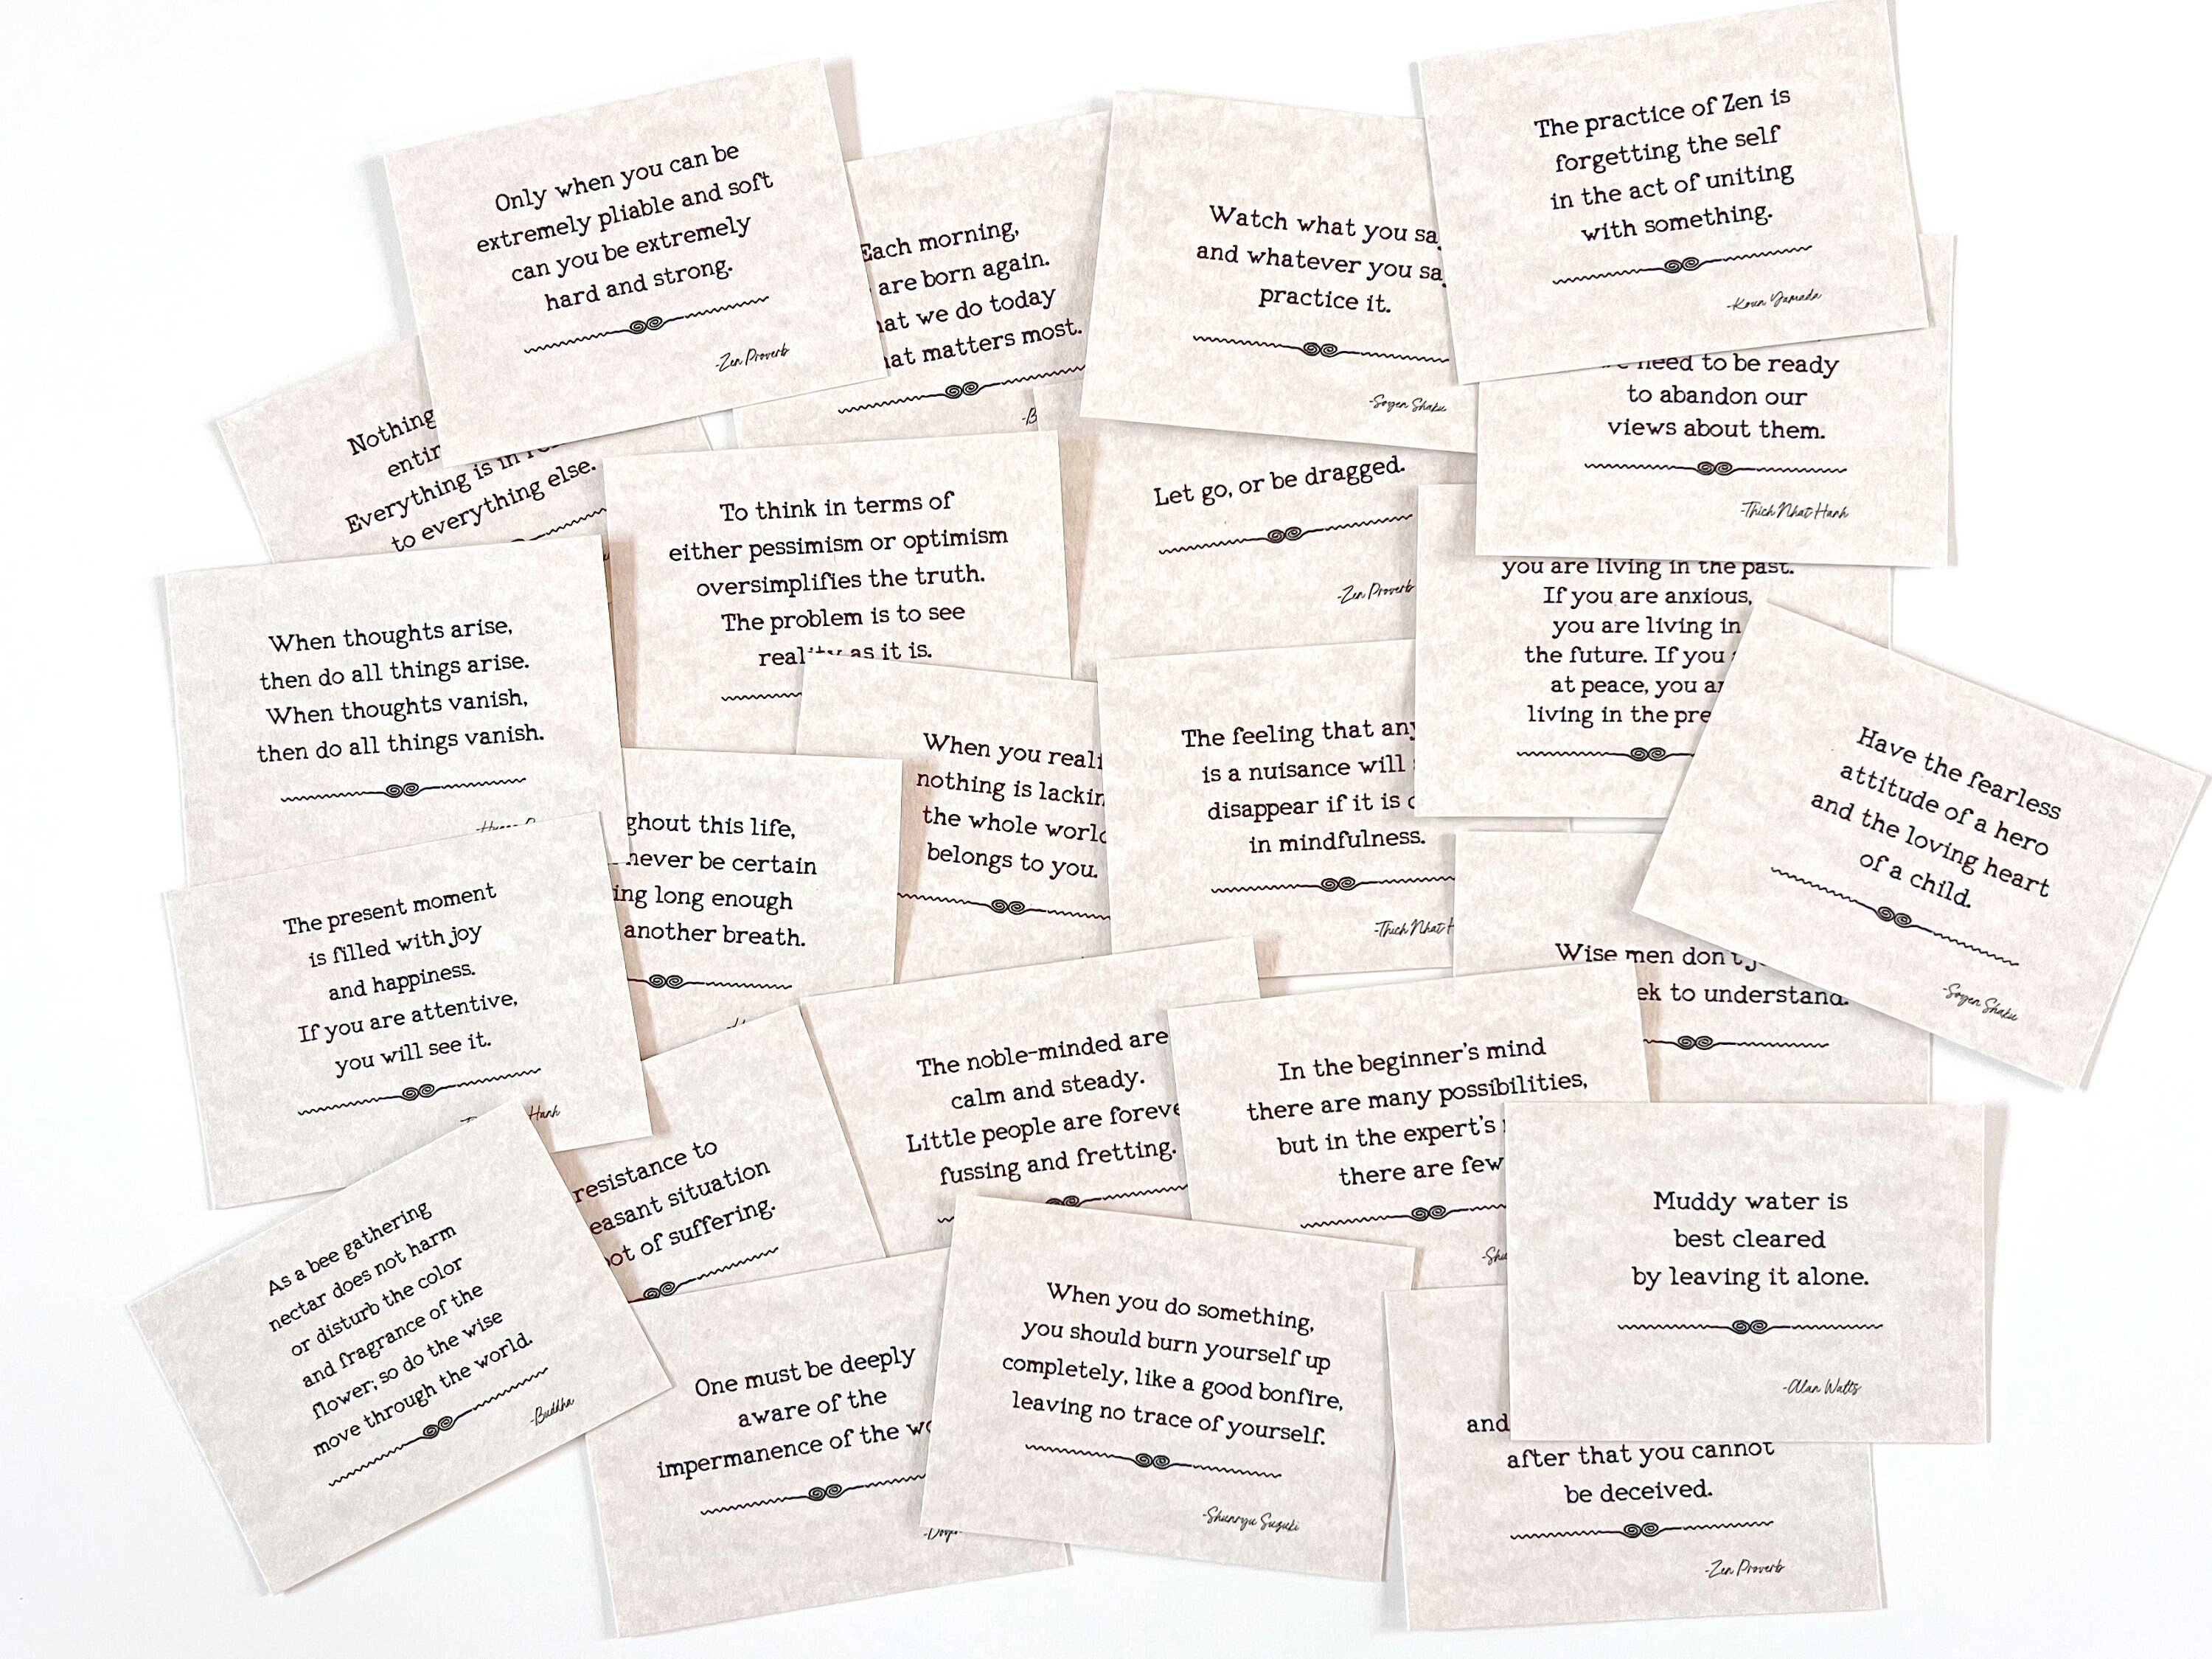 Only when you can be
extremely pliable and soft
can you be extremely
hard and strong.
-Zen Proverb
Each morning,
are born again.
we do today
matters most.
Watch what you
and whatever you
practice it.
-Soyen Shaku
The practice of Zen is
forgetting the self
in the act of uniting
with something.
-Koun Yamada
need to be ready
to abandon our
views about them.
-Thich Nhat Hanh
Nothing
Everything is in
to everything else.
To think in terms of
either pessimism or optimism
oversimplifies the truth.
The problem is to see
reality as it is.
Let go, or be dragged.
-Zen Proverb
you are living in the past.
If you are anxious,
you are living in
the future. If you
at peace, you
living in the
Have the fearless
attitude of a hero
and the loving heart
of a child.
-Soyen Shaku
When thoughts arise,
then do all things arise.
When thoughts vanish,
then do all things vanish.
this life,
never be certain
long enough
another breath.
When you
nothing is
the whole
belongs to you.
The feeling that
is a nuisance will
disappear if it is
in mindfulness.
-Thich Nhat
Wise men don't
to understand.
The present moment
is filled with joy
and happiness.
If you are attentive,
you will see it.
Hanh
resistance to
situation
of suffering.
The noble-minded are
calm and steady.
Little people are
fussing and fretting.
In the beginner's mind
there are many possibilities,
but in the expert's
there are few
Muddy water is
best cleared
by leaving it alone.
-Alan Watts
As a bee gathering
nectar does not harm
or disturb the color
and fragrance of the
flower; so do the wise
move through the world.
-Buddha
One must be deeply
aware of the
impermanence of the
When you do something,
you should burn yourself up
completely, like a good bonfire,
leaving no trace of yourself.
-Shunryu Suzuki
and
after that you cannot
be deceived.
-Zen Proverb